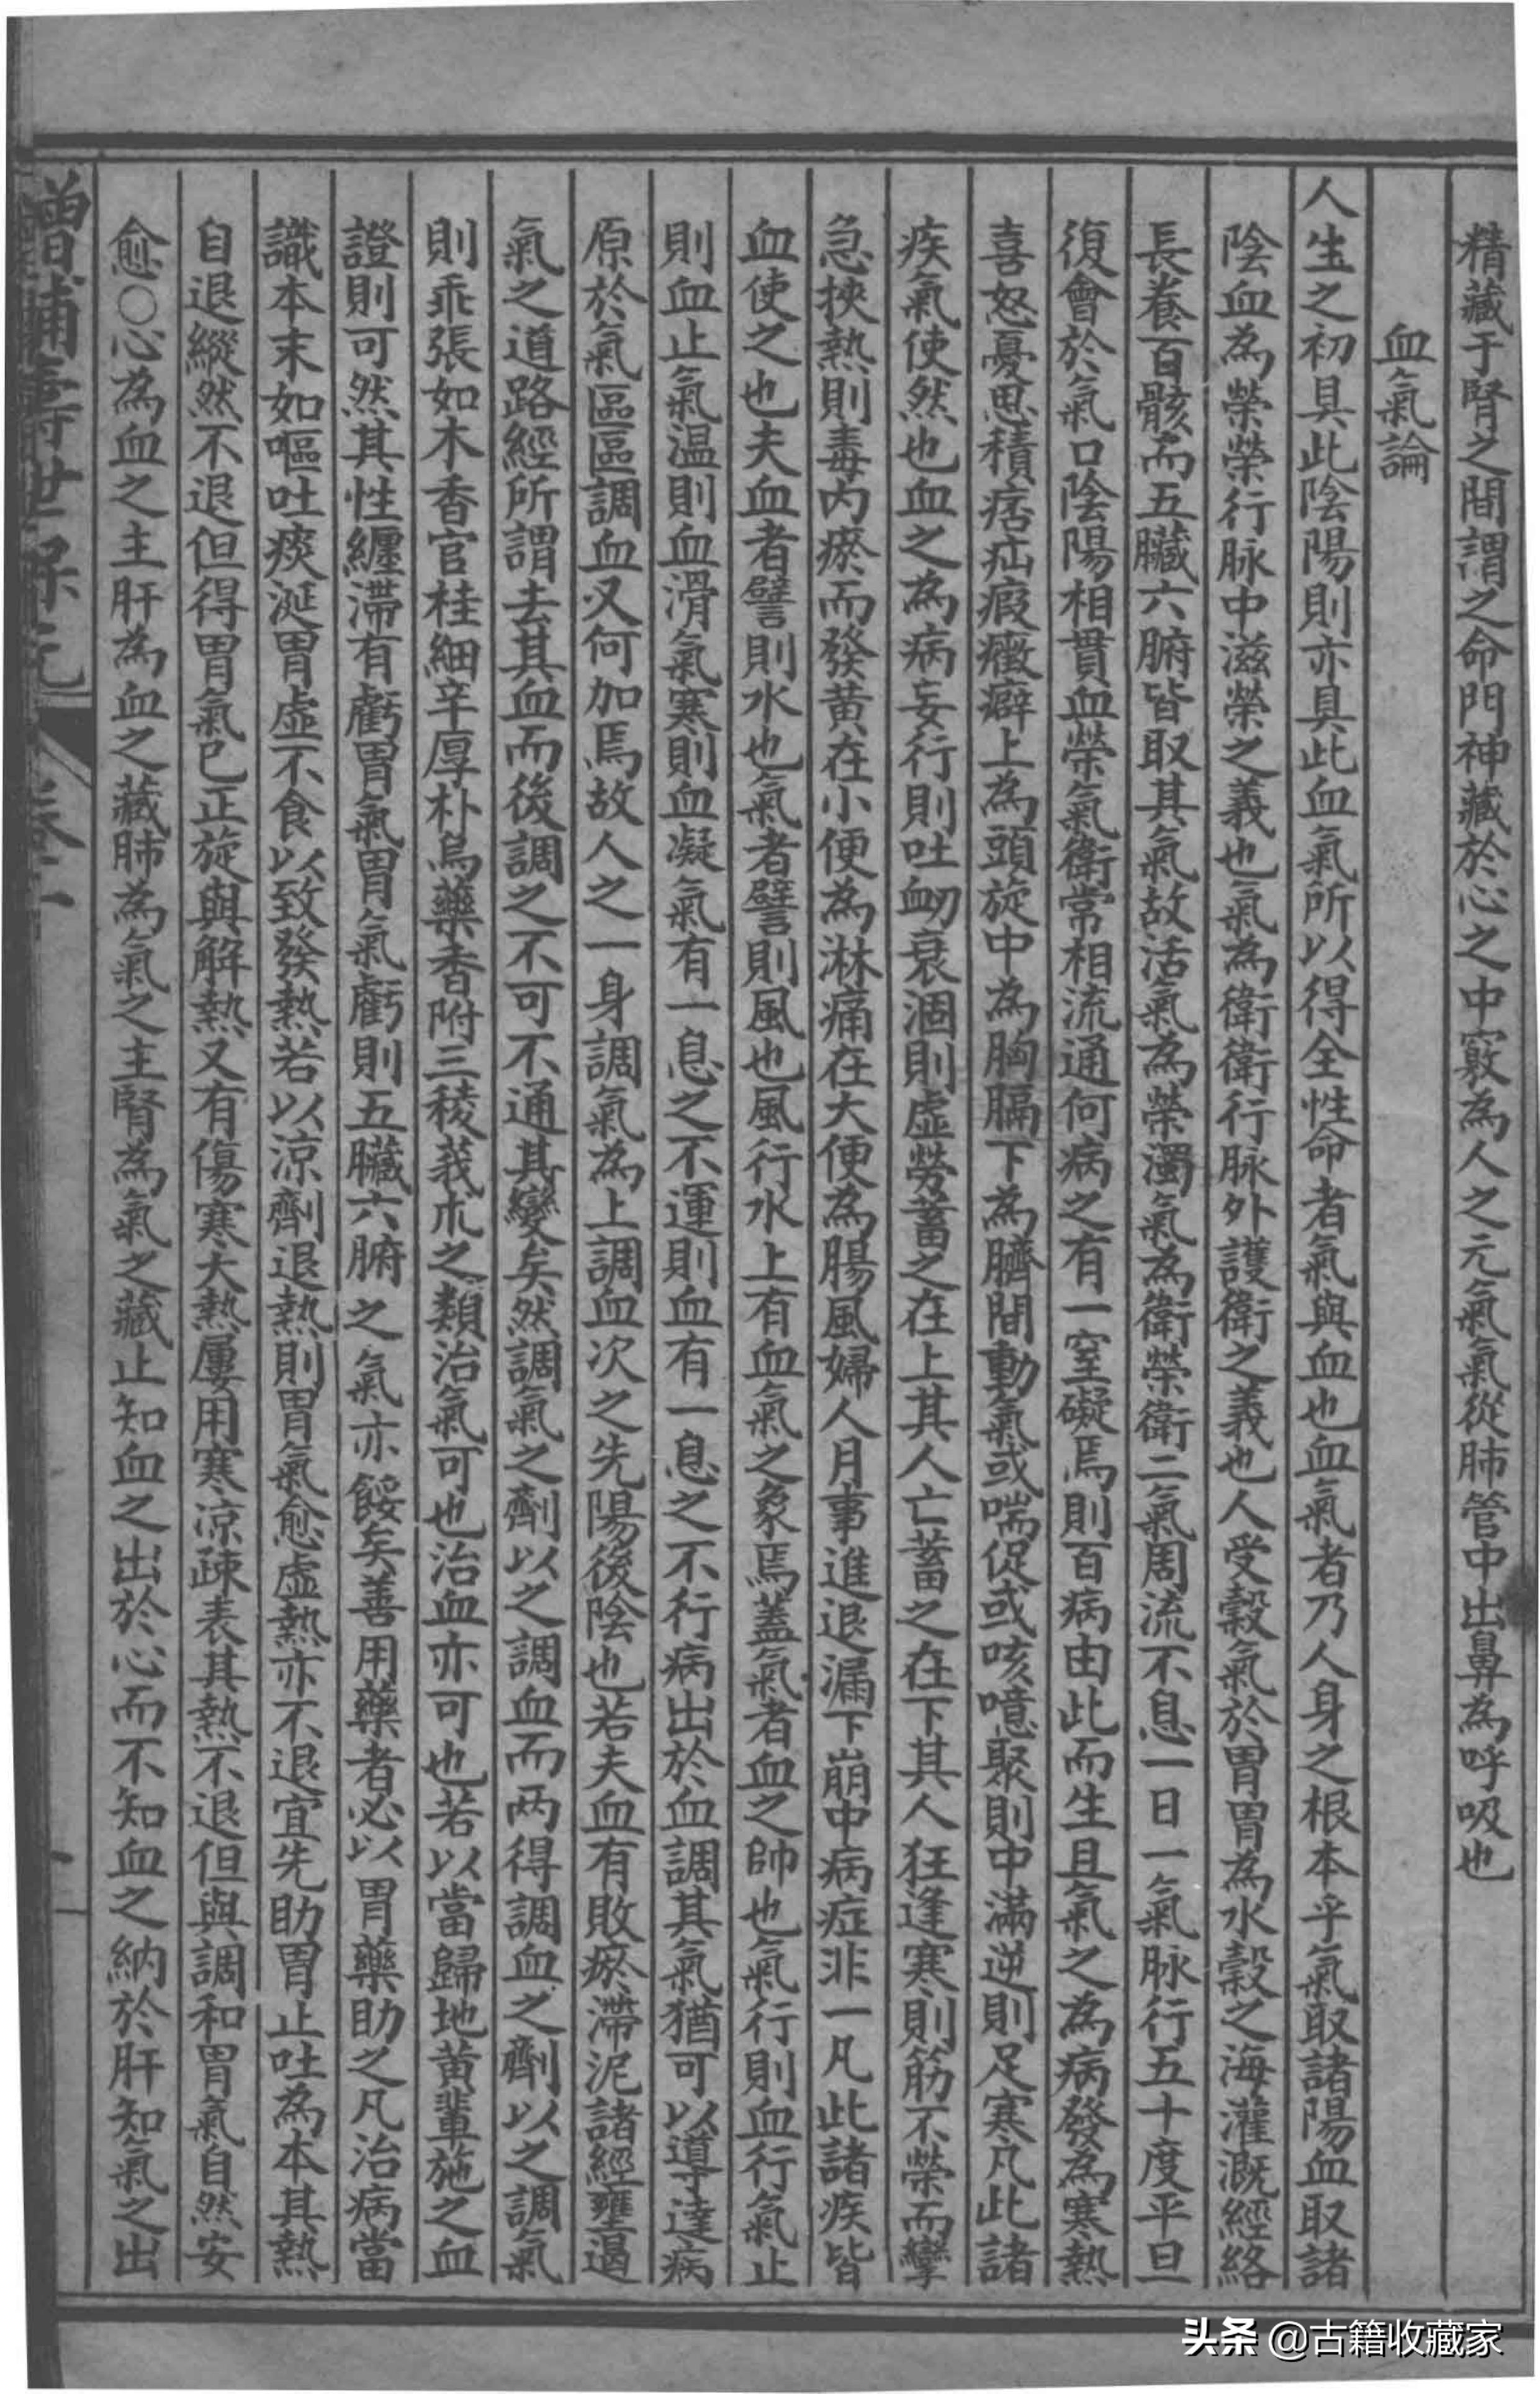 精藏于腎之間謂之命門神藏於心之中竅為人之元氣氣從肺管中出鼻為呼吸也
血氣論
人生之初具此陰陽則亦具此血氣所以得全性命者氣與血也血氣者乃人身之根本乎氣取諸陽血取諸
陰血為榮榮行脉中滋榮之義也氣為衛衛行脉外護衛之義也人受穀氣於胃胃為水穀之海灌溉經絡
長養百骸而五臟六腑皆取其氣故活氣為榮濁氣為衛榮衛二氣周流不息一日一氣脉行五十度平旦
復會於氣口陰陽相貫血榮氣衛常相流通何病之有一窒礙焉則百病由此而生且氣之為病發為寒熱
喜怒憂思積痞疝瘕癥癖上為頭旋中為胸膈下為臍間動氣或喘促或咳噫聚則中滿逆則足寒凡此諸
疾氣使然也血之為病妄行則吐衂衰涸則虛勞蓄之在上其人亡蓄之在下其人狂逢寒則筋不榮而攣
急挾熱則毒內瘀而發黃在小便為淋痛在大便為腸風婦人月事進退漏下崩中病症非一凡此諸疾皆
血使之也夫血者譬則水也氣者譬則風也風行水上有血氣之象焉蓋氣者血之帥也氣行則血行氣止
則血止氣溫則血滑氣寒則血凝氣有一息之不運則血有一息之不行病出於血調其氣猶可以導達病
原於氣區區調血又何加焉故人之一身調氣為上調血次之先陽後陰也若夫血有敗瘀滯泥諸經壅遏
氣之道路經所謂去其血而後調之不可不通其變矣然調氣之劑以之調血而两得調血之劑以之調氣
則乖張如木香官桂細辛厚朴烏藥香附三稜莪朮之類治氣可也治血亦可也若以當歸地黃輩施之血
證則可然其性纏滯有虧胃氣胃氣虧則五臟六腑之氣亦餒矣善用藥者必以胃藥助之凡治病當
識本末如嘔吐痰涎胃虛不食以致發熱若以涼劑退熱則胃氣愈虛熱亦不退宜先助胃止吐為本其熱
自退縱然不退但得胃氣已正旋與解熱又有傷寒大熱屢用寒凉疎表其熱不退但與調和胃氣自然安
愈○心為血之主肝為血之藏肺為氣之主腎為氣之藏止知血之出於心而不知血之納於肝知氣之出
增補壽世保元 卷一
头条 @古籍收藏家